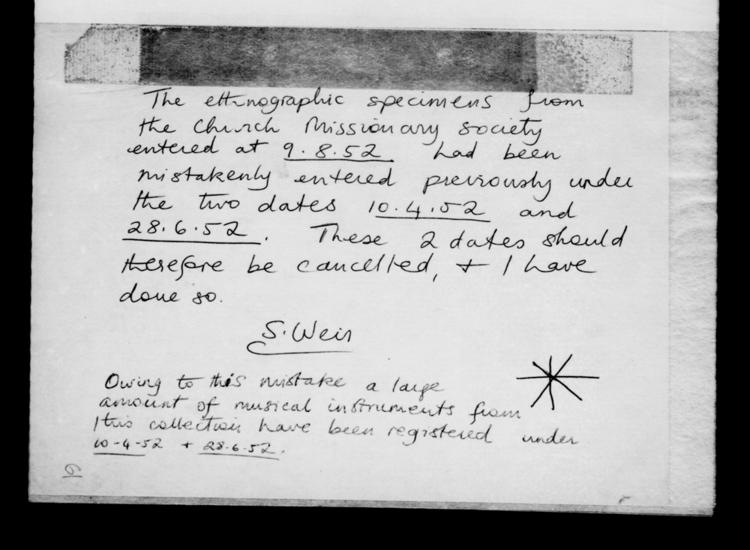 The ethnographic specimens from
the Church Missionary society
entered at 9.8.52 had been
mistakenly entered previously under
the two dates 10.4.52 and
28.6.52. These 2 dates should
therefore be cancelled, + I have
done so.
S. Weir
Owing to this mistake a large
amount of musical instruments from
this collection have been registered under
10-4-52 + 28.6.52.